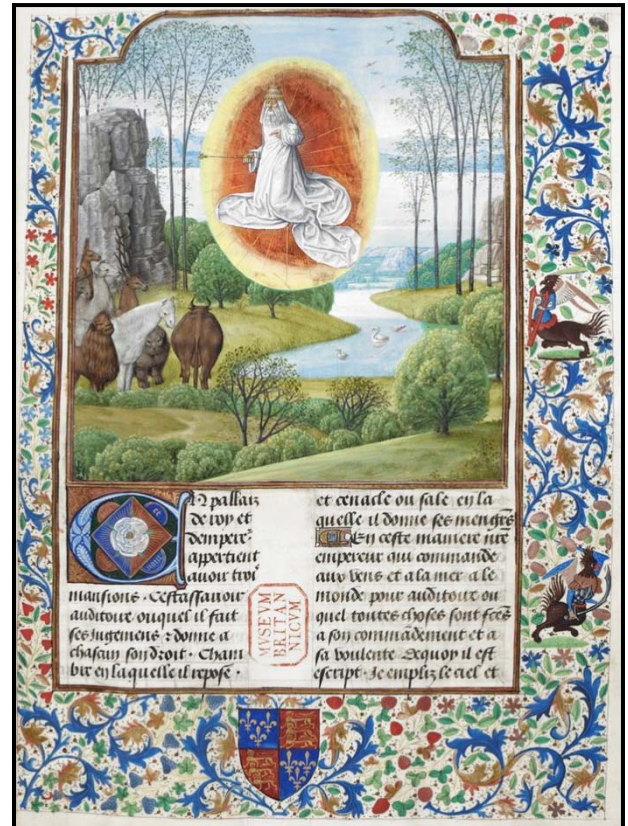 En pallaiz
de roy et
dempere᷒
appartient
auoir troi᷒
mansions. Cestassauoir
auditoire ouquel il fait
ses iugemens ⁊ donne a
chascun son droit. Cham
bre en laquelle il repose.
et cenacle ou sale en la
quelle il donne ses mengrs
En ceste maniere nr̄e
empereur qui commande
aux vens et a la mer a le
monde pour auditoire ou
quel toutes choses sont fc̄es
a son cōmādement et a
sa voulente. Dequoy il est
escript. Je emplis le ciel et
MVSEVM
BRITAN
NICVM